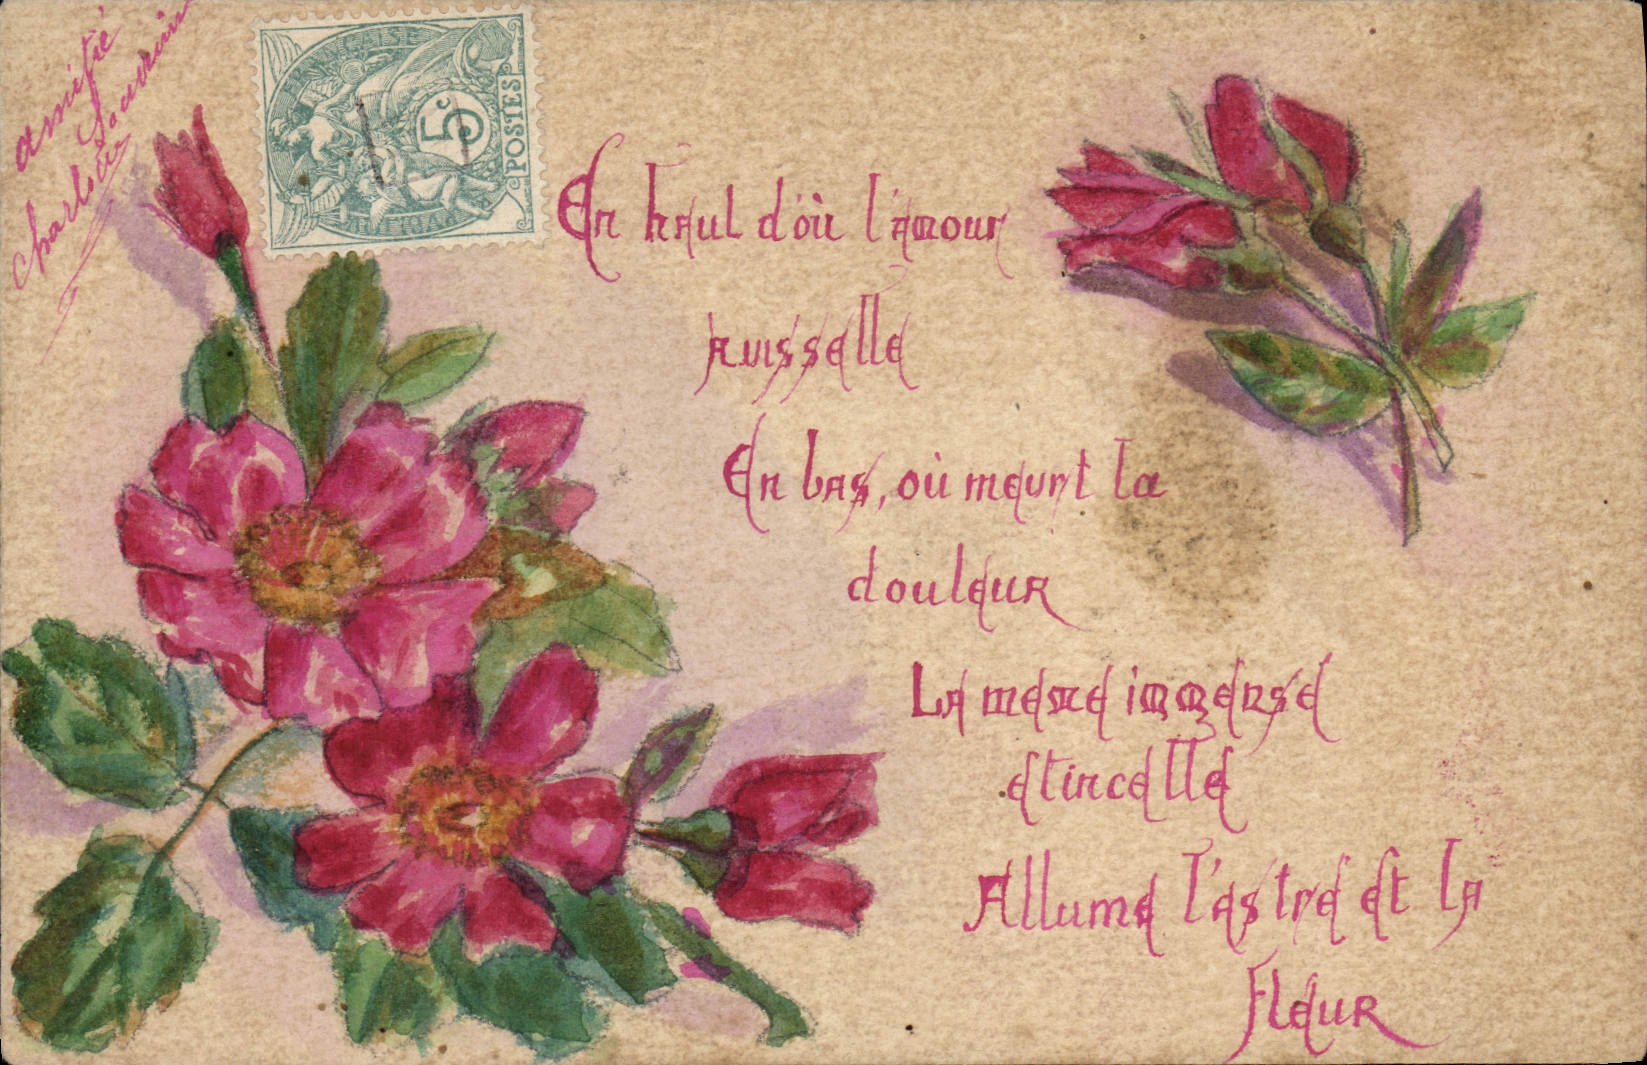 amitié
Souvenir
Charles
RÉPUBLIQUE FRANÇAISE
5c
POSTES
En haut d'où l'amour
ruisselle
En bas, où meurt la
douleur
La meme immense
etincelle
Allume l'astre et la
Fleur